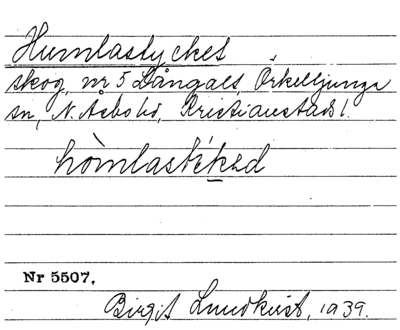 Humlastycket
skog, nr 5 Långalt, Örkelljunga
sn, N. Åsbo hd, Kristianstads l.
hòmlastékəd
Nr 5507.
Birgit Lundkvist, 1939.